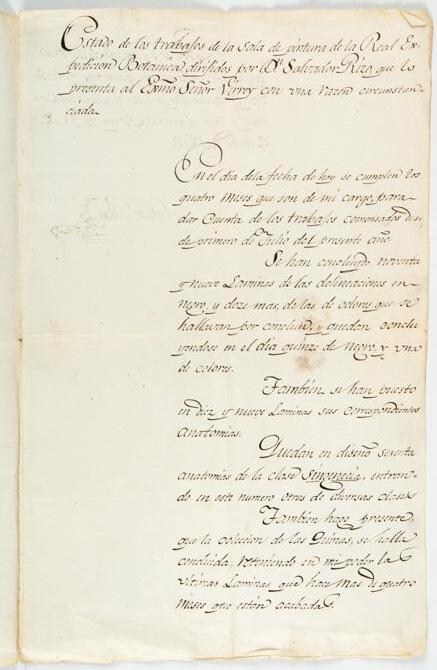 Estado de los trabajos de la Sala de pintura de la Real Ex-
pedicion Botanica dirijidos por Dn. Salvador Rizo, que lo
presenta al Exmo Señor Virrey con una razon circunstan-
ciada.
En el dia dela fecha de hoy se cumplen los
quatro meses que son de mi cargo, para
dar Cuenta de los trabajos comensados des-
de primero de Julio del presente año.
Se han concluido noventa
y nueve Laminas de las delineaciones en
negro, y doze mas, de las de colores que se
hallavan por concluir, y quedan conclu-
yendose en el dia quinze de negro, y una
de colores.
Tambien se han puesto
en diez y nueve Laminas sus correspondientes
anatomias.
Quedan en diseño sesenta
anatomias de la clase Singenecia, entran-
do en este numero otras de diversas clases
Tambien hago presente,
que la colecion de las Quinas, se halla
concluida, reteniendo en mi poder las
ultimas Laminas que hace mas de quatro
meses que están acabadas.